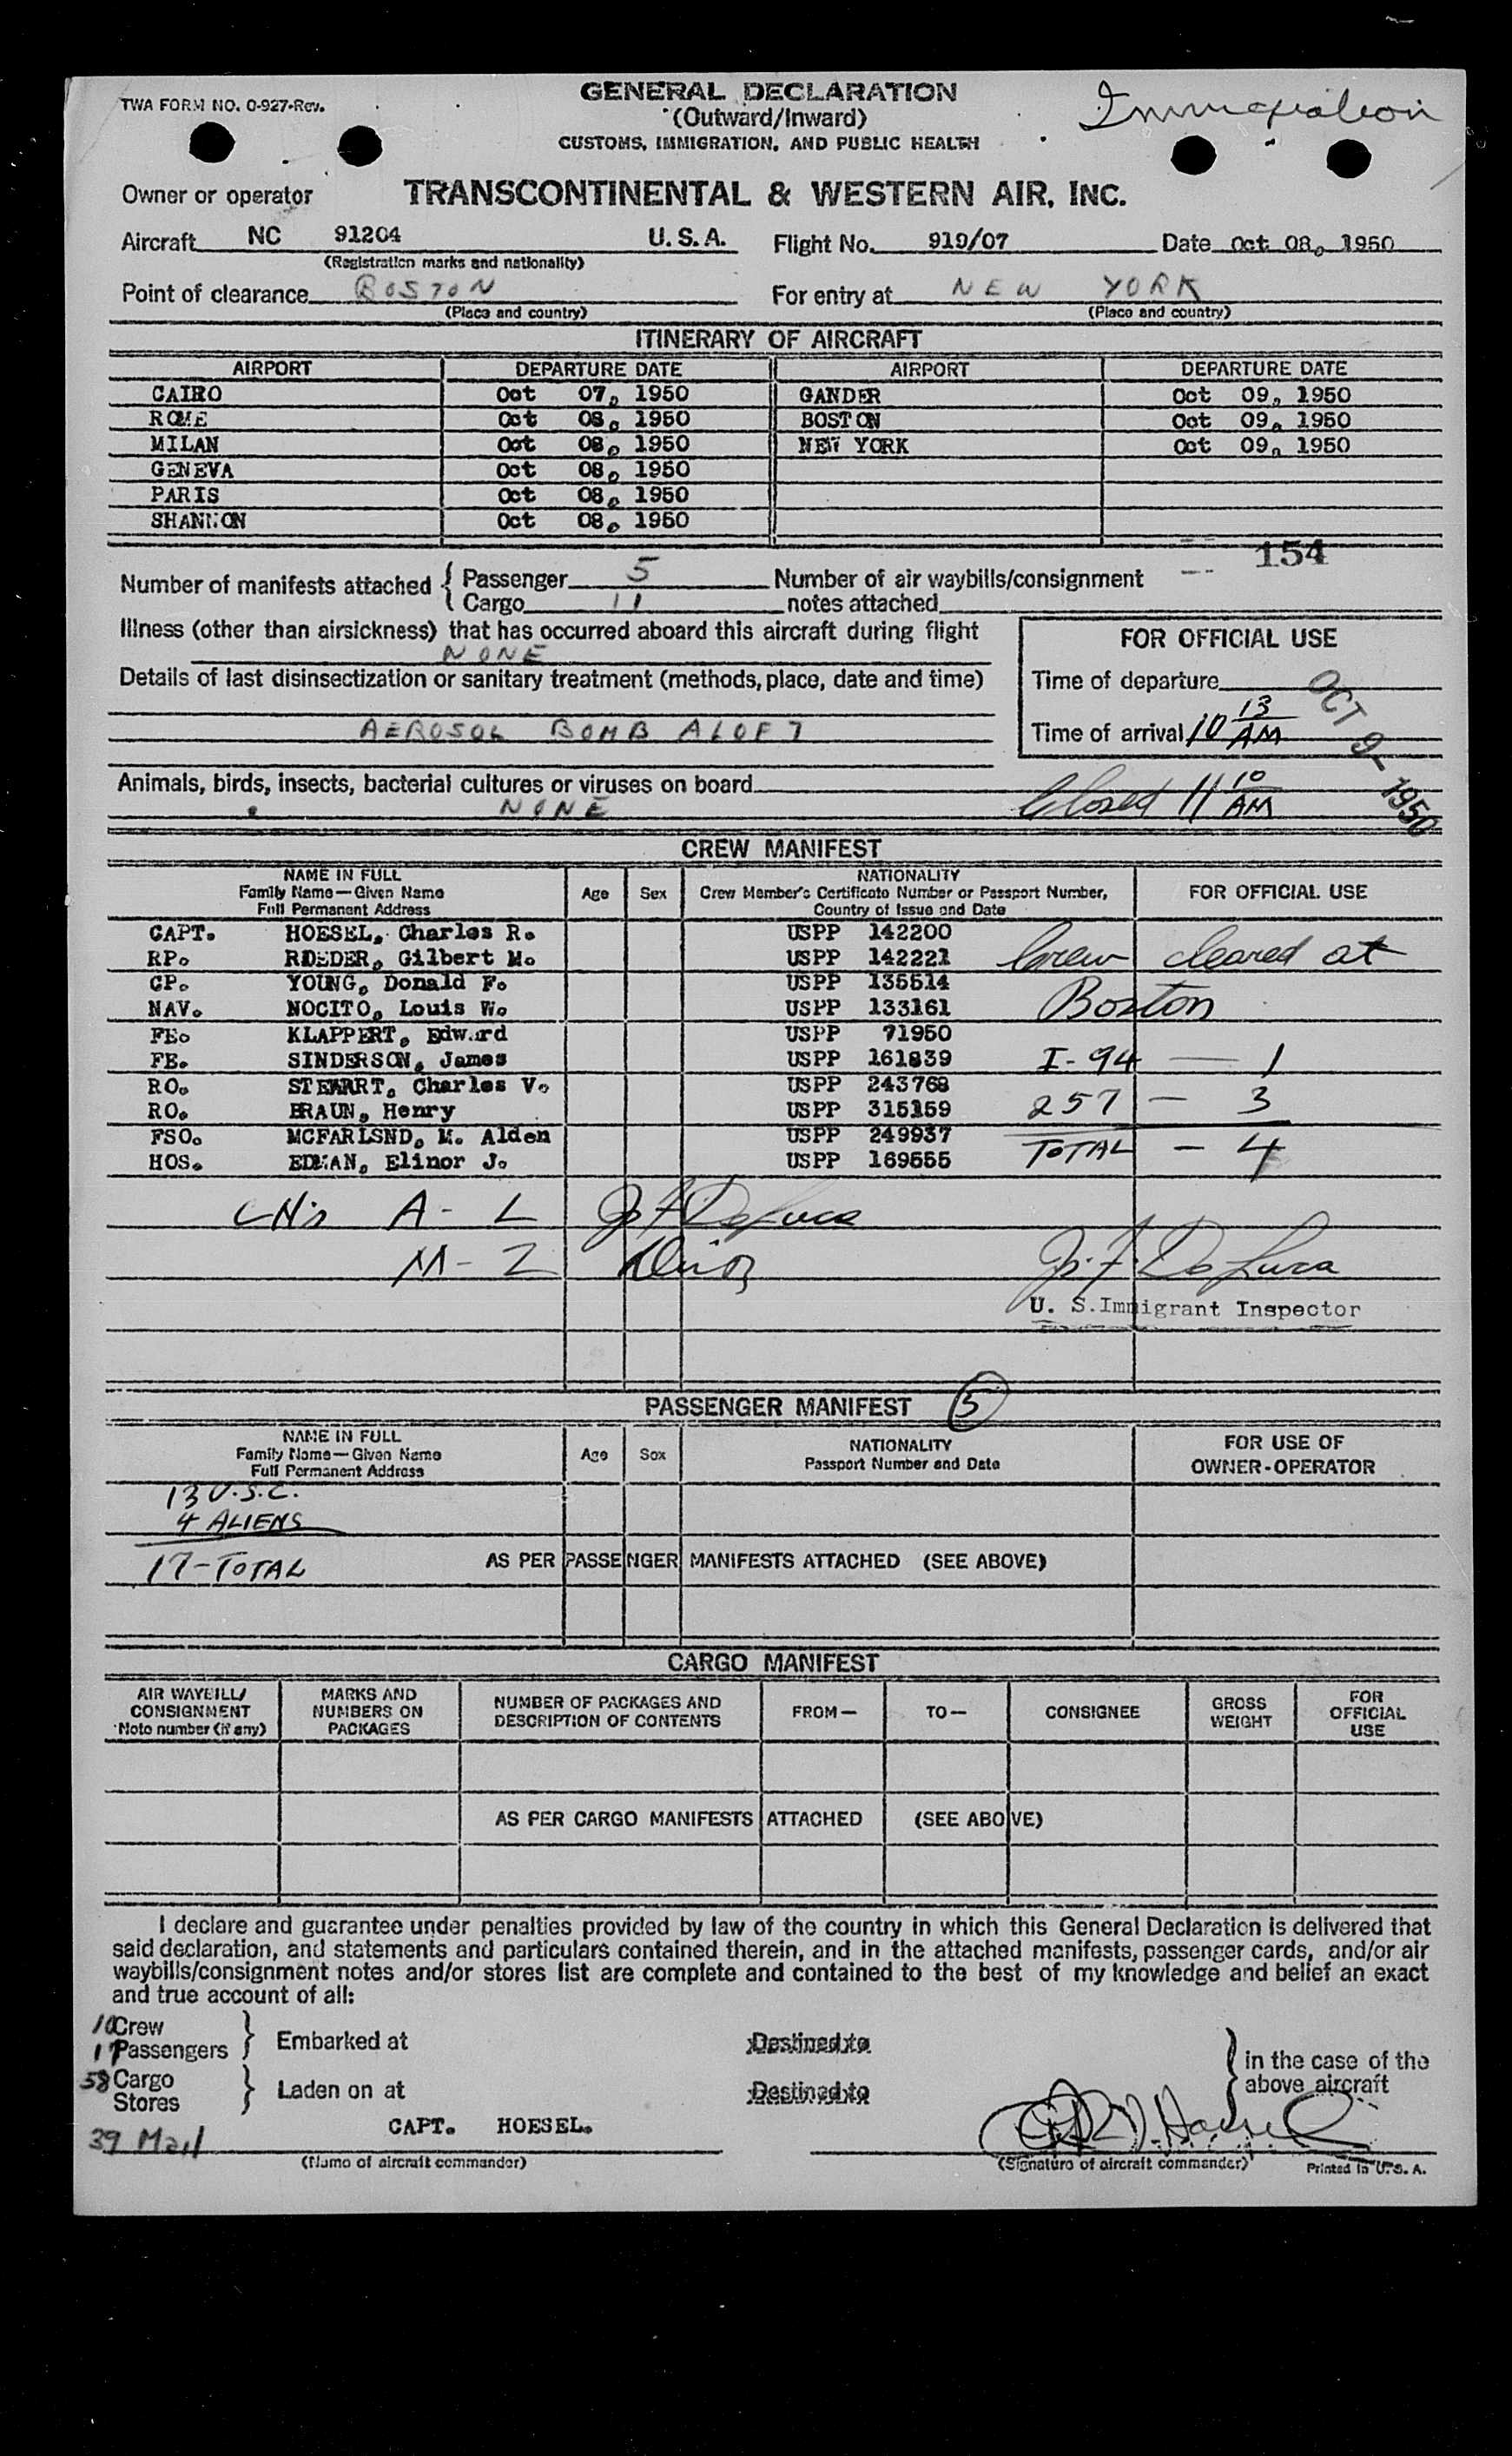 TWA FORM NO. O-927-Rev.
GENERAL DECLARATION
(Outward/Inward)
CUSTOMS, IMMIGRATION, AND PUBLIC HEALTH
Immigration
Owner or operator TRANSCONTINENTAL & WESTERN AIR, INC.
Aircraft NC 91204 U.S.A. Flight No. 919/07 Date Oct 08, 1950
(Registration marks and nationality)
Point of clearance BOSTON For entry at NEW YORK
(Place and country) (Place and country)
ITINERARY OF AIRCRAFT
AIRPORT DEPARTURE DATE AIRPORT DEPARTURE DATE
CAIRO Oct 07, 1950 GANDER Oct 09, 1950
ROME Oct 08, 1950 BOSTON Oct 09, 1950
MILAN Oct 08, 1950 NEW YORK Oct 09, 1950
GENEVA Oct 08, 1950
PARIS Oct 08, 1950
SHANNON Oct 08, 1950
154
Number of manifests attached { Passenger 5 Number of air waybills/consignment
Cargo 11 notes attached
Illness (other than airsickness) that has occurred aboard this aircraft during flight
NONE
Details of last disinsectization or sanitary treatment (methods, place, date and time)
AEROSOL BOMB ALOFT
FOR OFFICIAL USE
Time of departure
Time of arrival 10 13 AM
OCT 9- 1950
Animals, birds, insects, bacterial cultures or viruses on board
NONE
Closed 11 10 AM
CREW MANIFEST
NAME IN FULL
Family Name—Given Name
Full Permanent Address
Age Sex
NATIONALITY
Crew Member's Certificate Number or Passport Number,
Country of Issue and Date
FOR OFFICIAL USE
CAPT. HOESEL, Charles R. USPP 142200
RP. ROEDER, Gilbert M. USPP 142221 Crew cleared at
CP. YOUNG, Donald F. USPP 135514
NAV. NOCITO, Louis W. USPP 133161 Boston
FE. KLAPPERT, Edward USPP 71950
FE. SINDERSON, James USPP 161839 I-94 — 1
RO. STEWART, Charles V. USPP 243768
RO. BRAUN, Henry USPP 315159 257 — 3
FSO. MCFARLSND, M. Alden USPP 249937
HOS. EDMAN, Elinor J. USPP 169555 TOTAL — 4
A - L J. F. DeLuca
M - Z
J. F. DeLuca
U. S. Immigrant Inspector
PASSENGER MANIFEST 5
NAME IN FULL
Family Name—Given Name
Full Permanent Address
Age Sex
NATIONALITY
Passport Number and Date
FOR USE OF
OWNER-OPERATOR
13 U.S.C.
4 ALIENS
17-TOTAL AS PER PASSENGER MANIFESTS ATTACHED (SEE ABOVE)
CARGO MANIFEST
AIR WAYBILL/
CONSIGNMENT
Note number (if any)
MARKS AND
NUMBERS ON
PACKAGES
NUMBER OF PACKAGES AND
DESCRIPTION OF CONTENTS
FROM— TO— CONSIGNEE
GROSS
WEIGHT
FOR
OFFICIAL
USE
AS PER CARGO MANIFESTS ATTACHED (SEE ABOVE)
I declare and guarantee under penalties provided by law of the country in which this General Declaration is delivered that
said declaration, and statements and particulars contained therein, and in the attached manifests, passenger cards, and/or air
waybills/consignment notes and/or stores list are complete and contained to the best of my knowledge and belief an exact
and true account of all:
10 Crew
17 Passengers } Embarked at Destined to
58 Cargo
Stores } Laden on at Destined to
} in the case of the
above aircraft
39 Mail
CAPT. HOESEL.
(Name of aircraft commander) (Signature of aircraft commander) Printed in U.S.A.